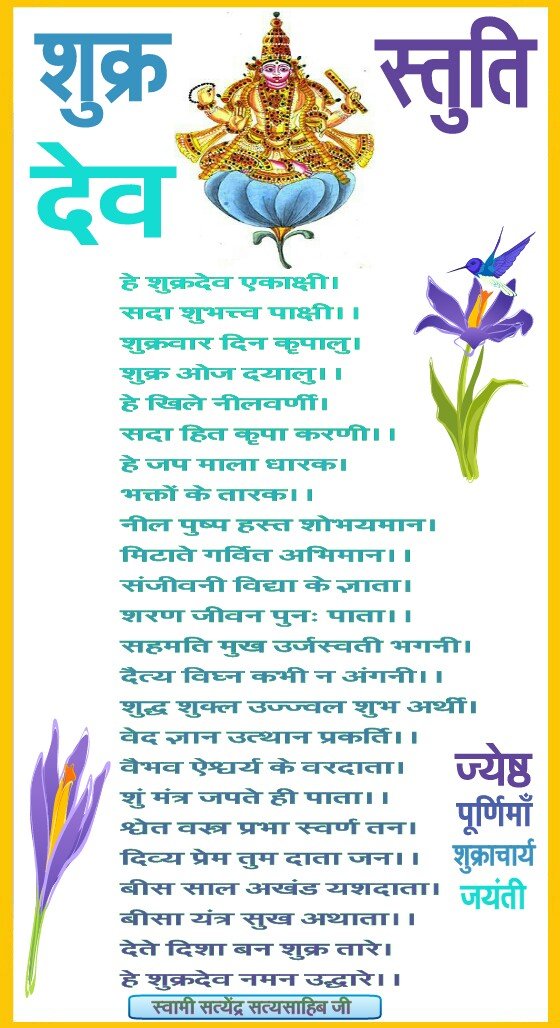 शुक्र स्तुति
देव
हे शुक्रदेव एकाक्षी।
सदा शुभत्त्व पाक्षी।।
शुक्रवार दिन कृपालु।
शुक्र ओज दयालु।।
हे खिले नीलवर्णी।
सदा हित कृपा करणी।।
हे जप माला धारक।
भक्तों के तारक।।
नील पुष्प हस्त शोभयमान।
मिटाते गर्वित अभिमान।।
संजीवनी विद्या के ज्ञाता।
शरण जीवन पुनः पाता।।
सहमति मुख उर्जस्वती भगनी।
दैत्य विघ्न कभी न अंगनी।।
शुद्ध शुक्ल उज्ज्वल शुभ अर्थी।
वेद ज्ञान उत्थान प्रकर्ति।।
वैभव ऐश्वर्य के वरदाता।
शुं मंत्र जपते ही पाता।।
श्वेत वस्त्र प्रभा स्वर्ण तन।
दिव्य प्रेम तुम दाता जन।।
बीस साल अखंड यशदाता।
बीसा यंत्र सुख अथाता।।
देते दिशा बन शुक्र तारे।
हे शुक्रदेव नमन उद्धारे।।
ज्येष्ठ
पूर्णिमाँ
शुक्राचार्य
जयंती
स्वामी सत्येंद्र सत्यसाहिब जी